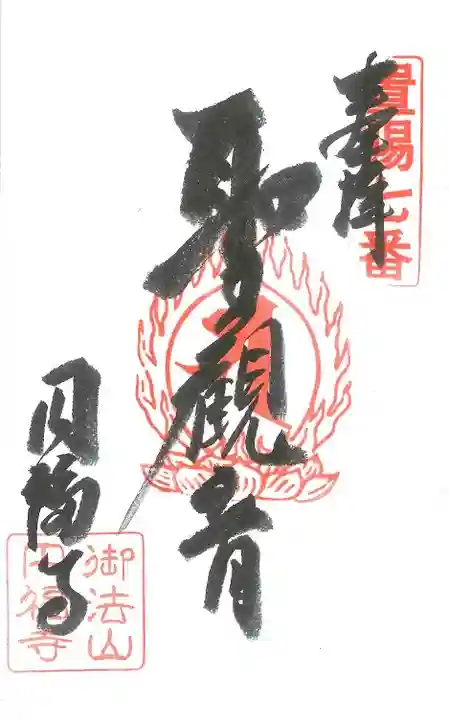 奉拝
置賜七番
聖觀音
円福寺
御法山
円福寺